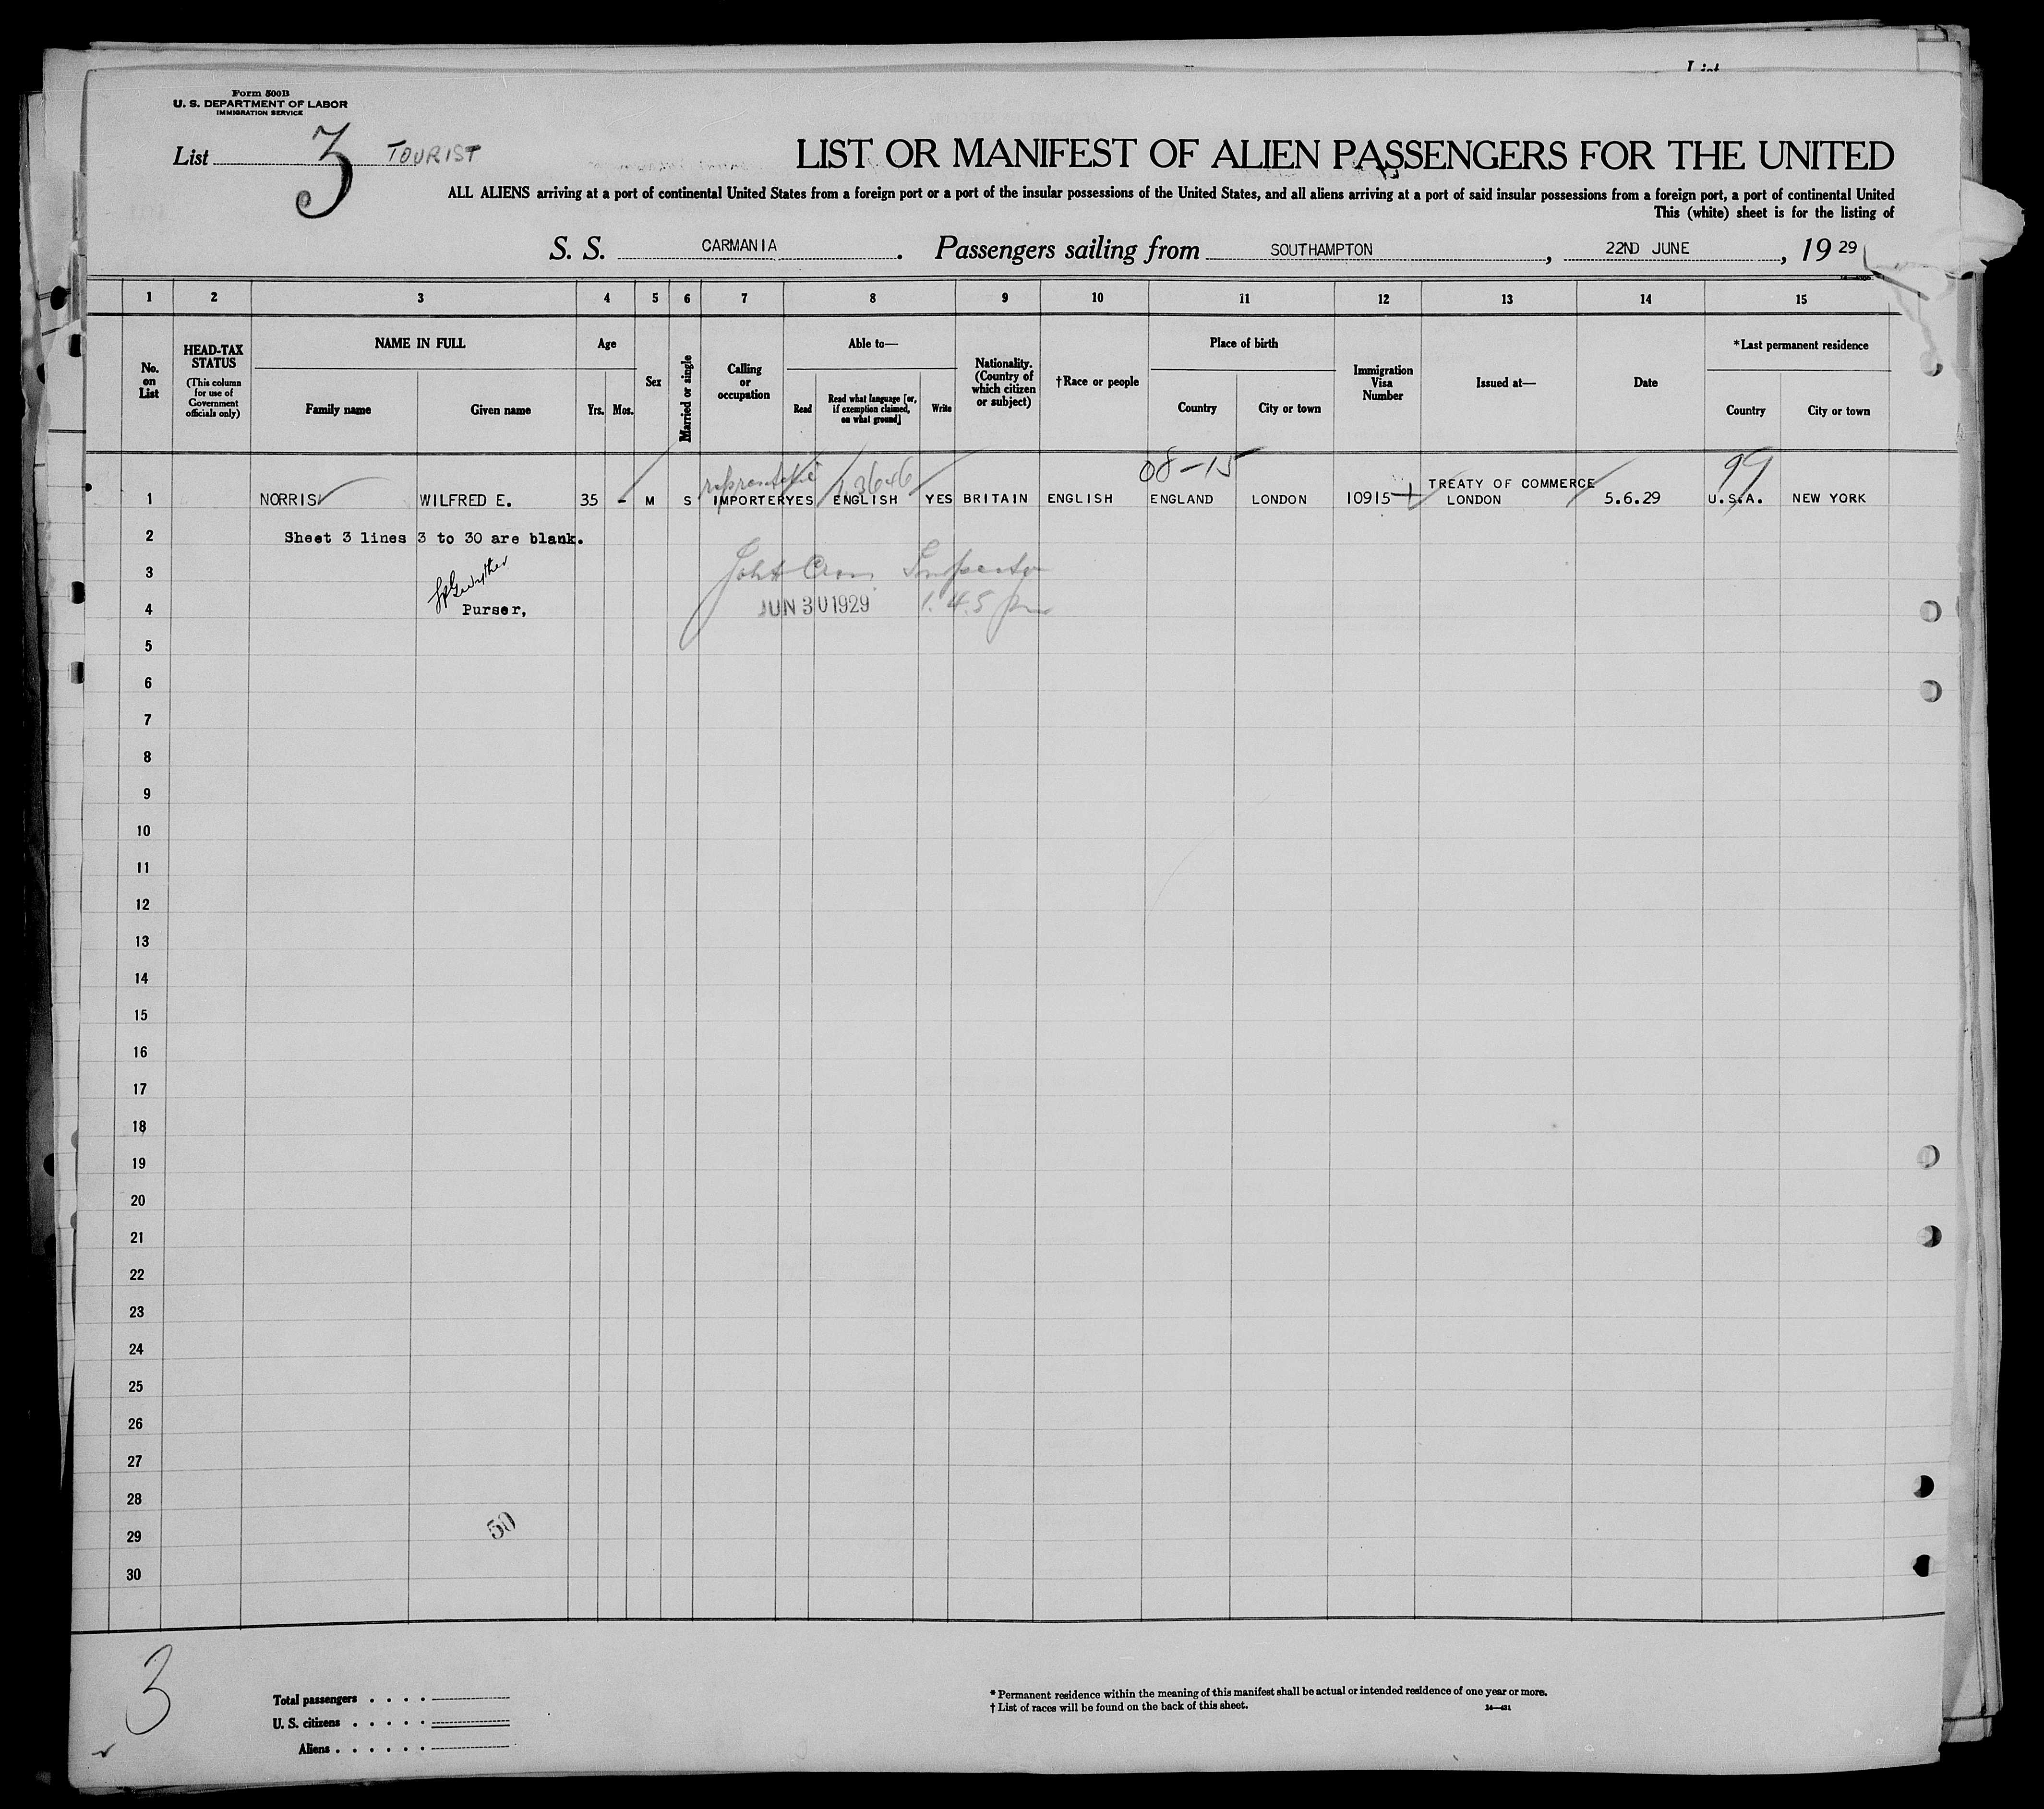 List
Form 500B
U. S. DEPARTMENT OF LABOR
IMMIGRATION SERVICE
List 3 TOURIST
LIST OR MANIFEST OF ALIEN PASSENGERS FOR THE UNITED
ALL ALIENS arriving at a port of continental United States from a foreign port or a port of the insular possessions of the United States, and all aliens arriving at a port of said insular possessions from a foreign port, a port of continental United
This (white) sheet is for the listing of
S. S. CARMANIA. Passengers sailing from SOUTHAMPTON, 22ND JUNE, 19 29
1 2 3 4 5 6 7 8 9 10 11 12 13 14 15
No. on List
HEAD-TAX STATUS (This column for use of Government officials only)
NAME IN FULL
Family name
Given name
Age
Yrs. Mos.
Sex
Married or single
Calling or occupation
Able to—
Read
Read what language [or, if exemption claimed, on what ground]
Write
Nationality. (Country of which citizen or subject)
†Race or people
Place of birth
Country
City or town
Immigration Visa Number
Issued at—
Date
*Last permanent residence
Country
City or town
08-15 99
TREATY OF COMMERCE
1 NORRIS WILFRED E. 35 - M S IMPORTER YES ENGLISH YES BRITAIN ENGLISH ENGLAND LONDON 10915 LONDON 5.6.29 U.S.A. NEW YORK
2 Sheet 3 lines 3 to 30 are blank.
3 Inspector
4 Purser, JUN 30 1929 1.45 pm
5
6
7
8
9
10
11
12
13
14
15
16
17
18
19
20
21
22
23
24
25
26
27
28
29 50
30
3
Total passengers . . . .
U. S. citizens . . . . .
Aliens . . . . . .
* Permanent residence within the meaning of this manifest shall be actual or intended residence of one year or more.
† List of races will be found on the back of this sheet.
14—421